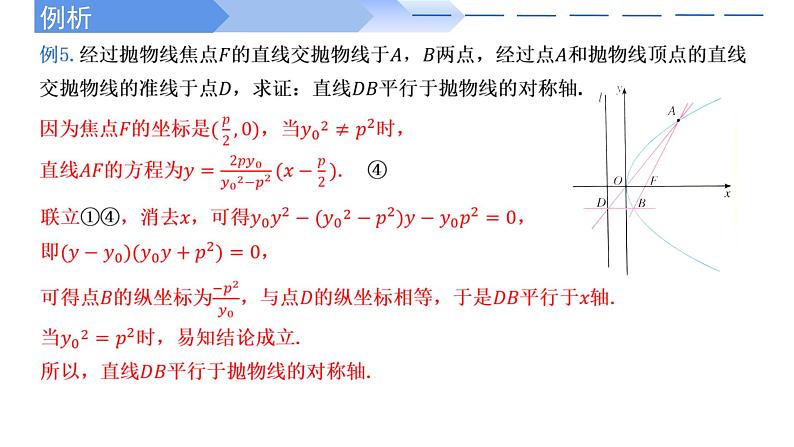 例析
例5.经过抛物线焦点F的直线交抛物线于A，B两点，经过点A和抛物线顶点的直线
交抛物线的准线于点D，求证：直线DB平行于抛物线的对称轴.
因为焦点F的坐标是(p/2,0)，当y₀²≠p²时，
直线AF的方程为y=2py₀/(y₀²−p²)(x−p/2). ④
联立①④，消去x，可得y₀y²−(y₀²−p²)y−y₀p²=0，
即(y−y₀)(y₀y+p²)=0，
可得点B的纵坐标为−p²/y₀，与点D的纵坐标相等，于是DB平行于x轴.
当y₀²=p²时，易知结论成立.
所以，直线DB平行于抛物线的对称轴.
l
y
A
O
F
x
D
B